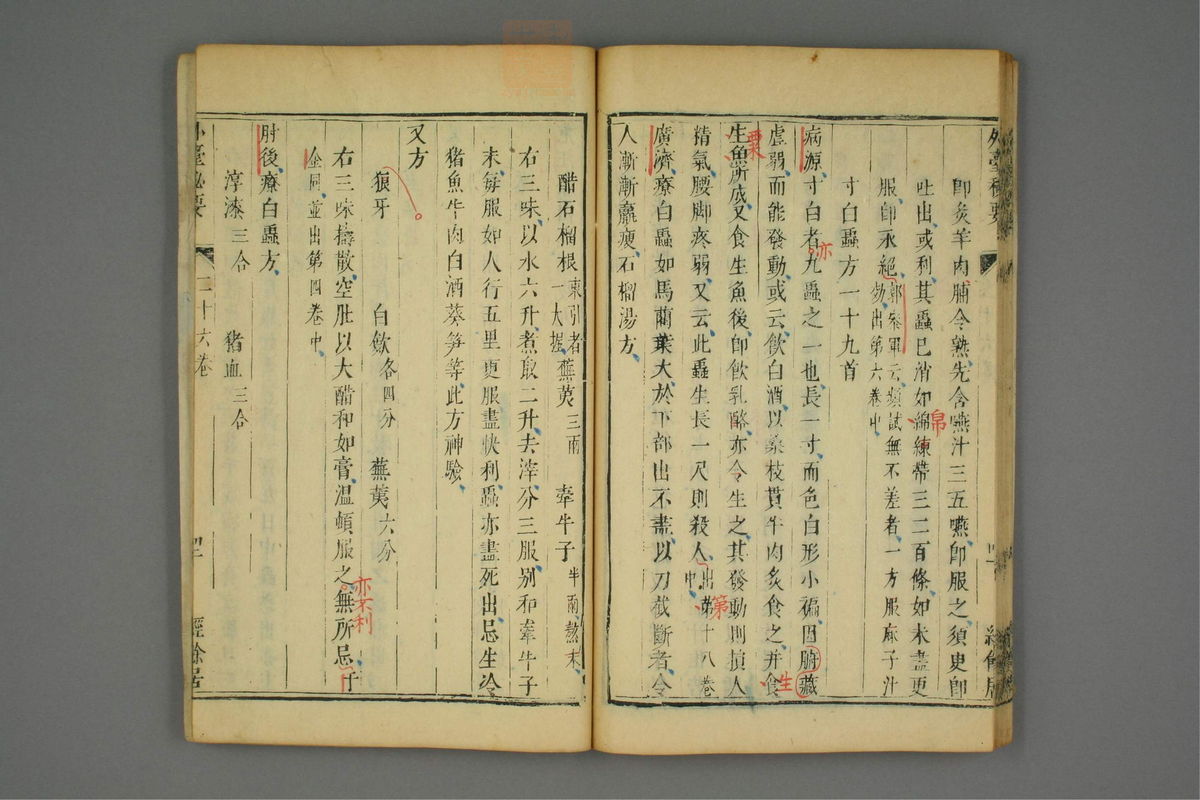 外臺秘要
即炙羊肉脯令熟先含嚥汁三五嚥即服之須臾即
吐出或利其蟲已消如綿練帶三二百條如未盡更
服即永絕郭參軍云頻試無不差者一方服麻子汁
勿出第六卷中
寸白蟲方一十九首
病源寸白者九蟲之一也長一寸而色白形小褊因腑藏
虛弱而能發動或云飲白酒以桑枝貫牛肉炙食之并食
生魚所成又食生魚後即飲乳酪亦令生之其發動則損人
精氣腰脚疼弱又云此蟲生長一尺則殺人出第十八卷
中
廣濟療白蟲如馬藺葉大於下部出不盡以刀截斷者令
人漸漸羸瘦石榴湯方
醋石榴根東引者一大握蕪荑三兩 牽牛子半兩熬末
右三味以水六升煮取二升去滓分三服别和牽牛子
末每服如人行五里更服盡快利蟲亦盡死出忌生冷
猪魚牛肉白酒葵笋等此方神驗
又方
狼牙 白斂各四分 蕪荑六分
右三味擣散空肚以大醋和如膏溫頓服之無所忌千
金同並出第四卷中
肘後療白蟲方
淳漆三合 猪血三合
外臺秘要
二十六卷
經餘居
帛
亦
生
粟
第
亦不利